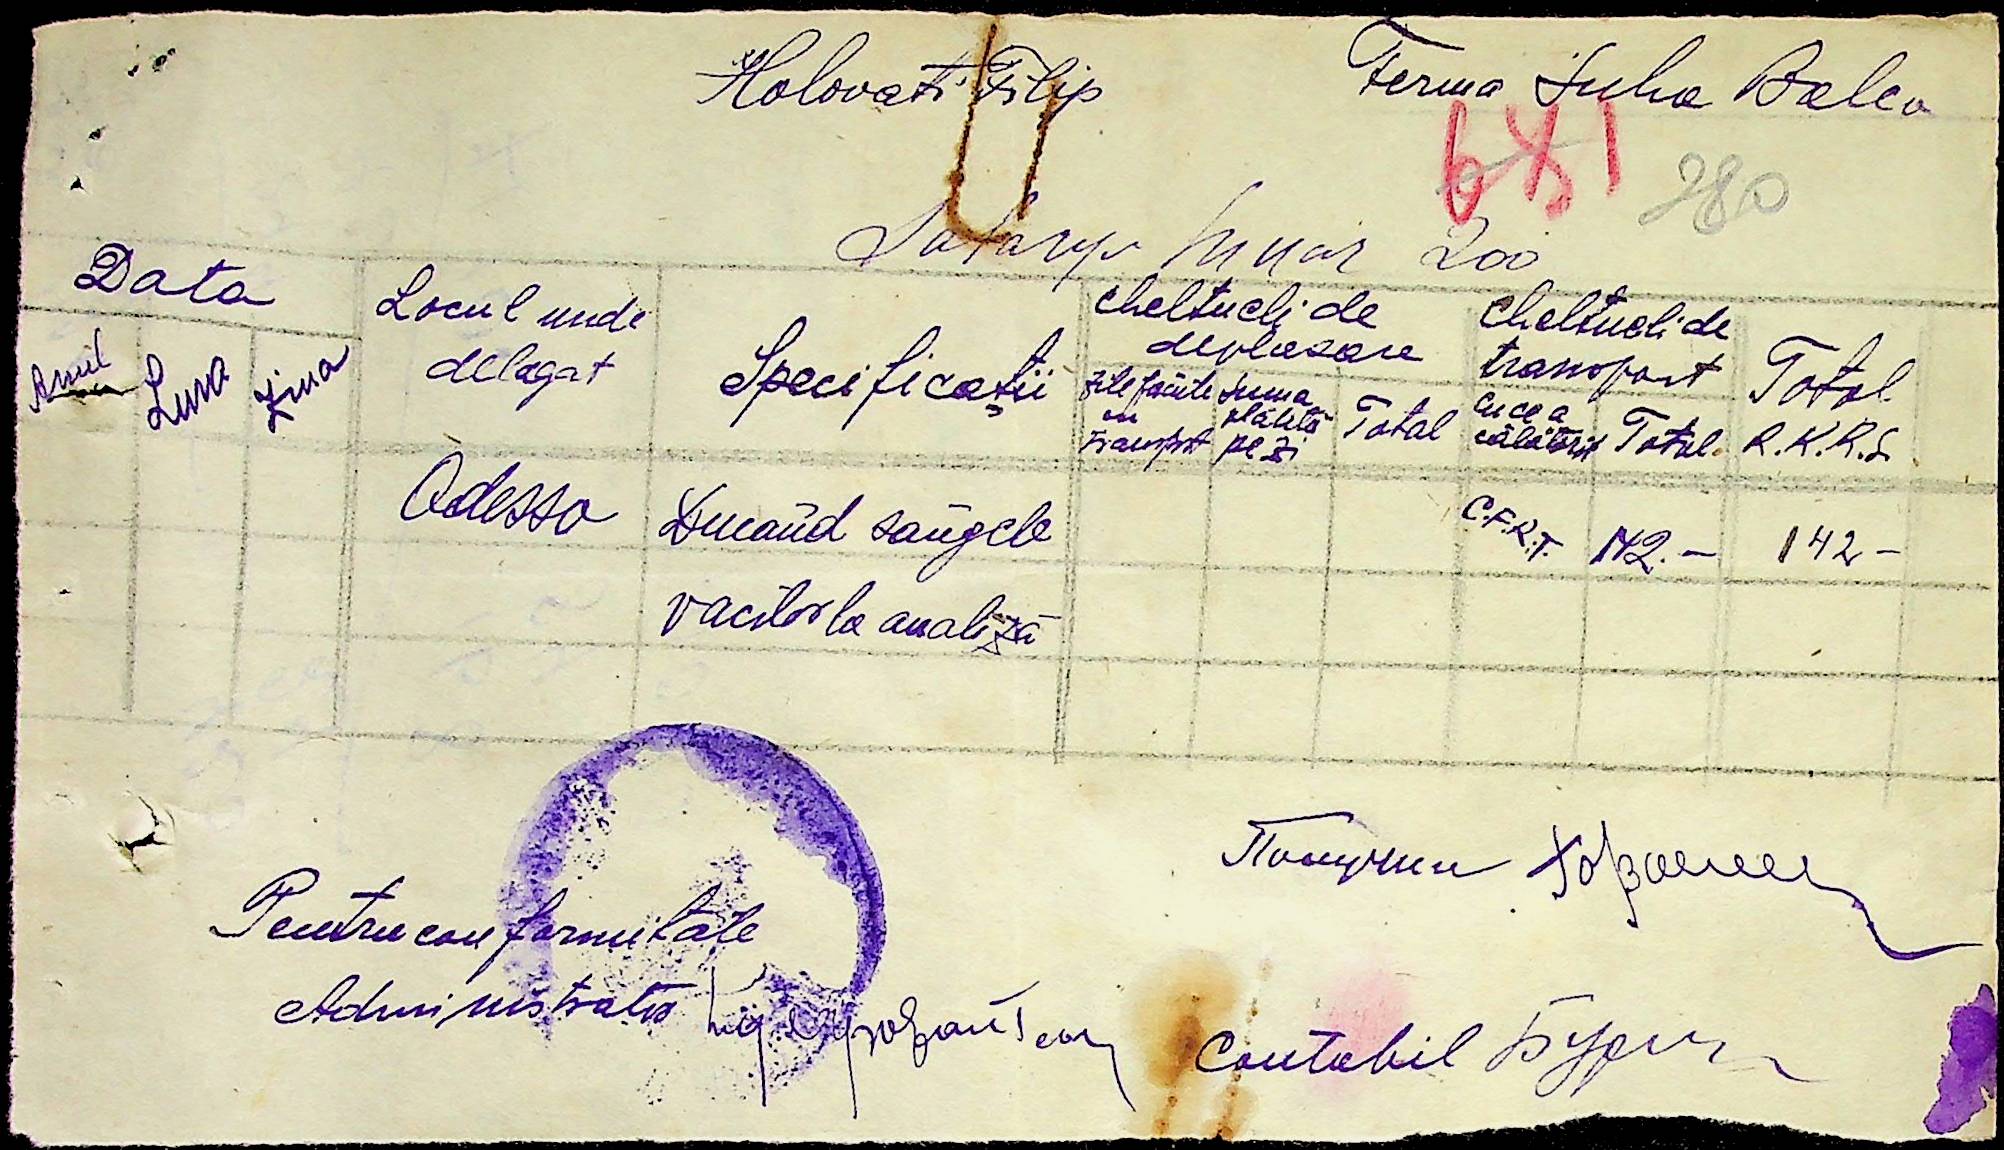 Holovati Filip
Ferma Suha Balca
681
280
Salariu lunar 200
Data
Anul
Luna
Ziua
Locul unde
delegat
Specificații
Cheltueli de
deplasare
Zile făcute
cu
transport
Suma
plătită
pe zi
Total
Cheltueli de
transport
cu ce a
călătorit
Total
Total
R.K.R.S.
Odessa
Ducând sângele
vacilor la analiză
C.F.R.T.
142.—
142—
Pentru conformitate
Administrator
Получил
Contabil